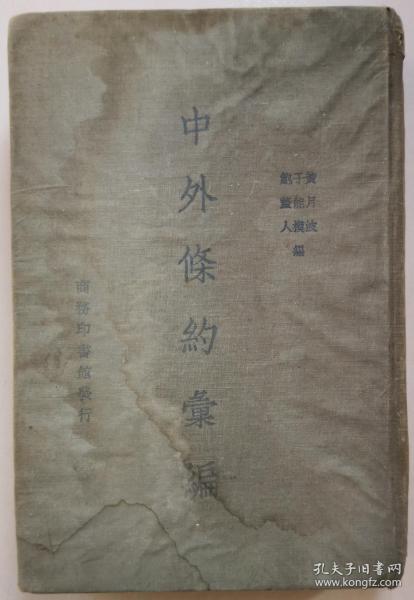 黄月波
于能模
鲍釐人編
中外條約彙編
商務印書館發行
孔夫子旧书网
www.kongfz.com